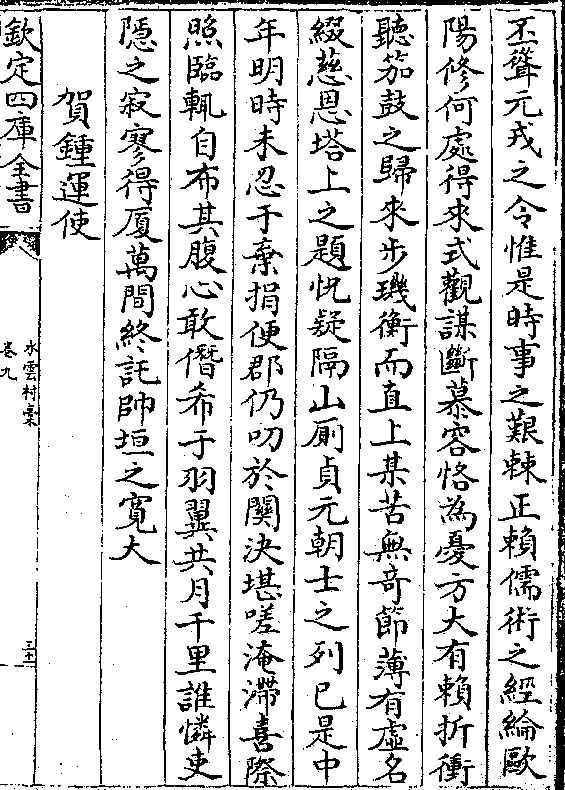 丕聳元戎之令惟是時事之艱棘正賴儒術之經綸歐
陽修何處得來式觀謀斷慕容恪為憂方大有賴折衝
聽笳鼓之歸來步璣衡而直上某苦無竒節薄有虛名
綴慈恩塔上之題怳疑隔山厠貞元朝士之列已是中
年明時未忍于棄捐便郡仍叨於闋決堪嗟淹滯喜際
照臨輒自布其腹心敢僭希于羽翼共月千里誰憐吏
隱之寂寥得厦萬間終託帥垣之寛大
賀鍾運使
欽定四庫全書
水雲村稾
卷九
三十一